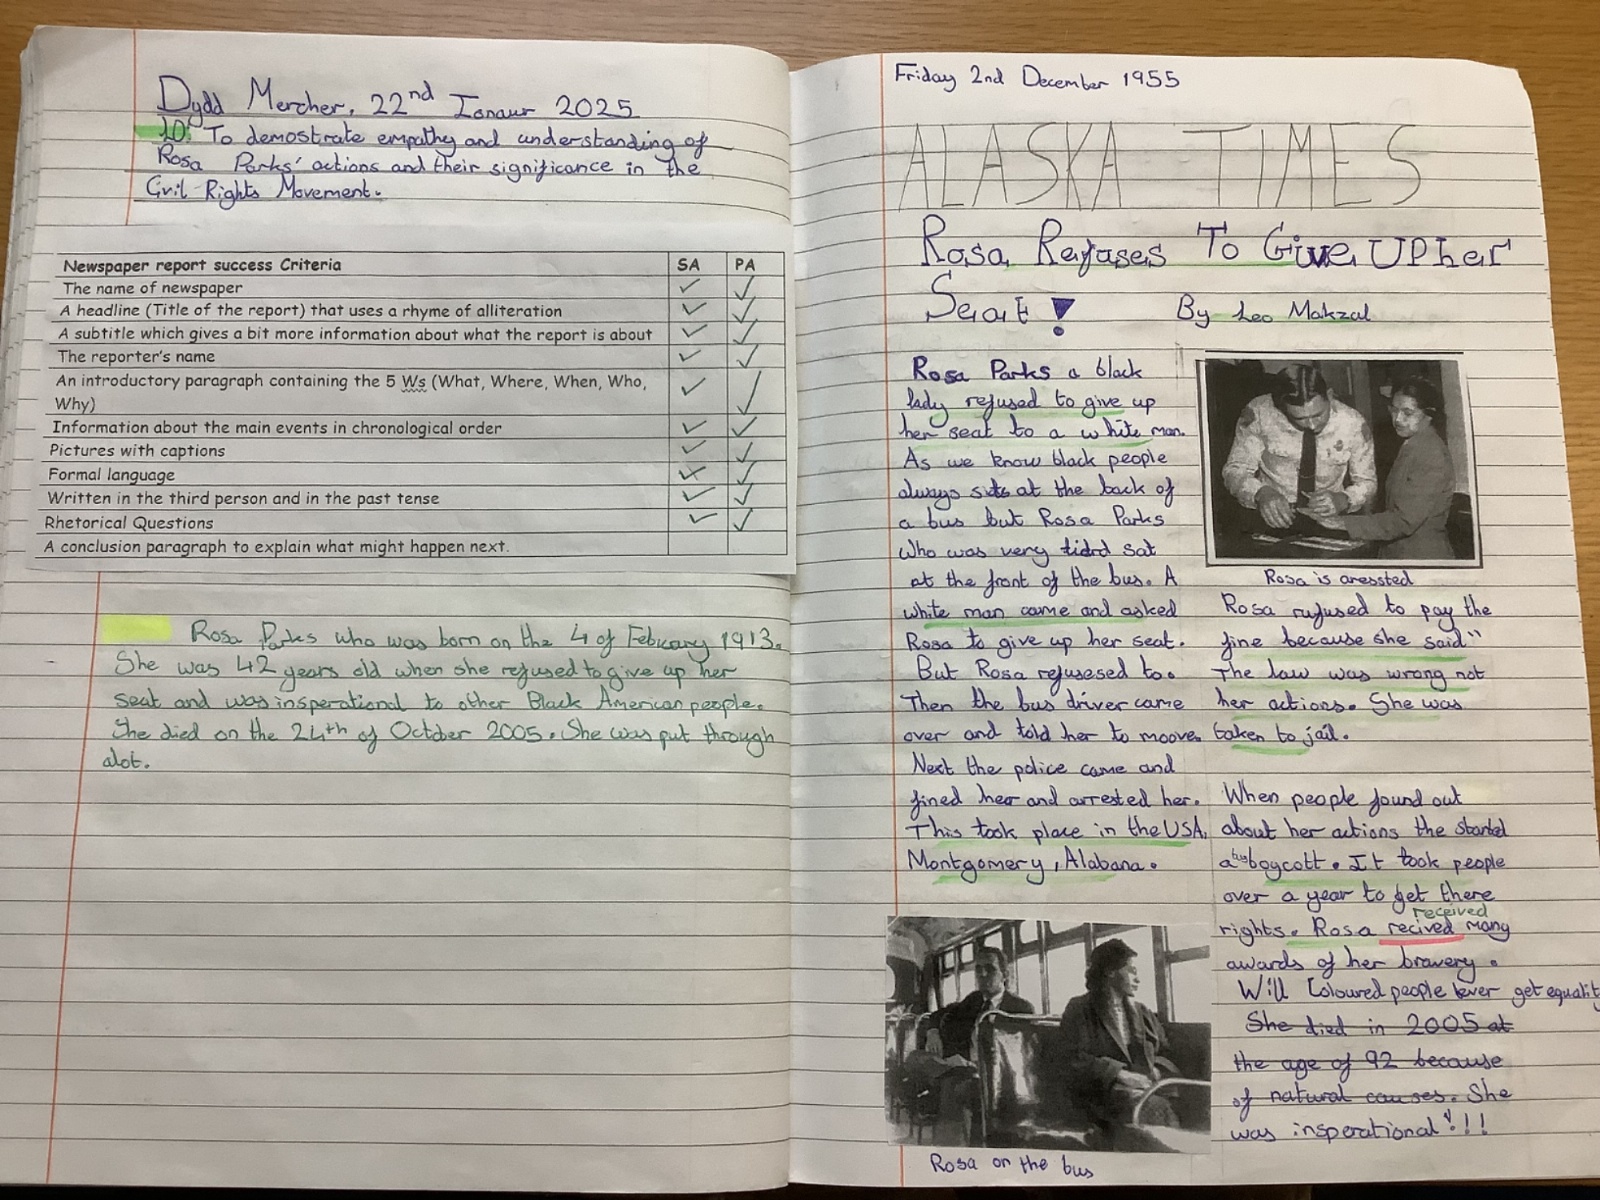 Dydd Mercher, 22nd Ionawr 2025
LO: To demostrate empathy and understanding of
Rosa Parks' actions and their significance in the
Civil Rights Movement.
Newspaper report success Criteria SA PA
The name of newspaper ✓ ✓
A headline (Title of the report) that uses a rhyme of alliteration ✓ ✓
A subtitle which gives a bit more information about what the report is about ✓ ✓
The reporter's name ✓ ✓
An introductory paragraph containing the 5 Ws (What, Where, When, Who,
Why) ✓ ✓
Information about the main events in chronological order ✓ ✓
Pictures with captions ✓ ✓
Formal language ✓ ✓
Written in the third person and in the past tense ✓ ✓
Rhetorical Questions ✓ ✓
A conclusion paragraph to explain what might happen next.
Rosa Parks who was born on the 4 of February 1913.
She was 42 years old when she refused to give up her
seat and was insperational to other Black American people.
She died on the 24th of October 2005. She was put through
alot.
Friday 2nd December 1955
ALASKA TIMES
Rosa Refuses To Give UP her
Seat!
By Leo Makzal
Rosa Parks a black
lady refused to give up
her seat to a white man.
As we know black people
always at the back of
a bus but Rosa Parks
who was very sat
at the front of the bus. A
white man came and asked
Rosa to give up her seat.
But Rosa refusesed to.
Then the bus driver came
over and told her to moove.
Next the police came and
fined her and arrested her.
This took place in the USA,
Montgomery, Alabana.
Rosa on the bus
Rosa is aressted
Rosa refused to pay the
fine because she said"
The law was wrong not
her actions. She was
taken to jail.
When people found out
about her actions the started
a bus boycott. It took people
over a year to get there
received
rights. Rosa recived many
awards of her bravery.
Will Coloured people ever get equality
She died in 2005 at
the age of 92 because
of natural causes. She
was insperational!!!